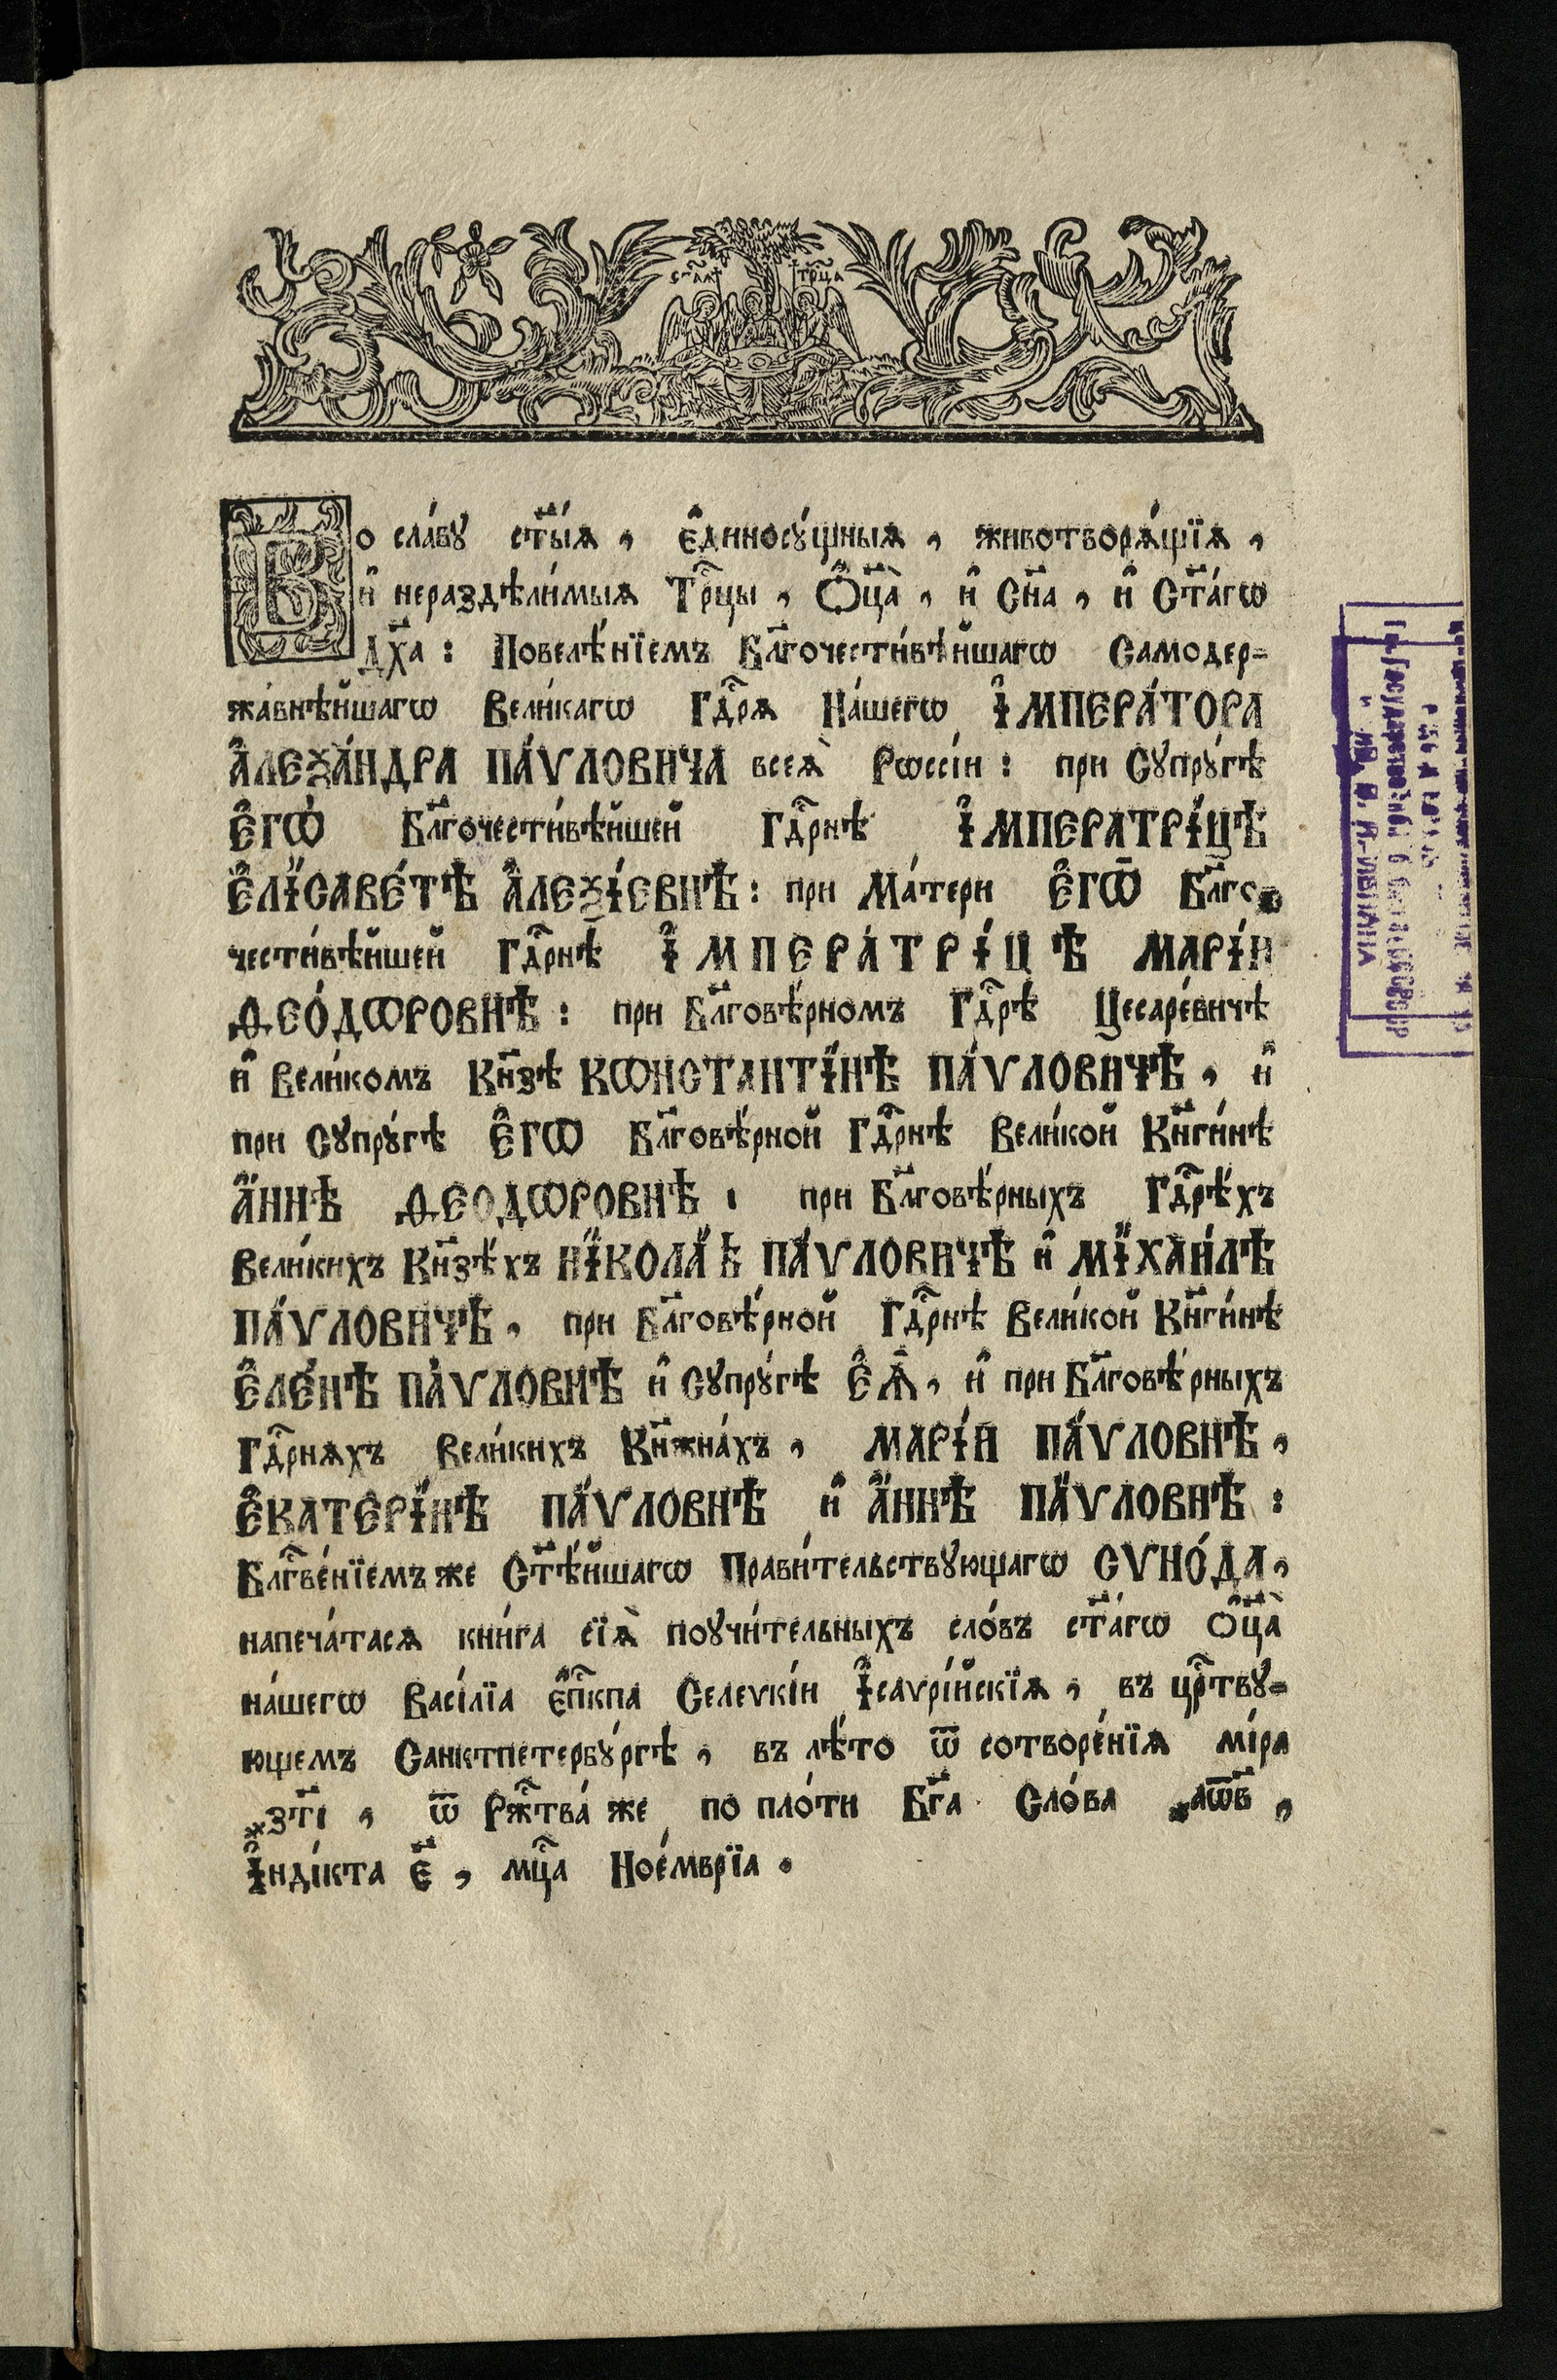 ст҃ая трⷪ҇ца
Во сла́вꙋ ст҃ы́ѧ , є҆диносꙋ́щныѧ , животворѧ́щїѧ ,
и҆ нераздѣли́мыѧ Трⷪ҇цы , Ѻ҆ц҃а̀ , и҆ Сн҃а , и҆ Ст҃а́гѡ
Дх҃а : Повелѣ́нїемъ Бл҃гочести́вѣйшагѡ Самодер=
жа́внѣйшагѡ Вели́кагѡ Гдⷭ҇рѧ На́шегѡ І҆МПЕРА́ТОРА
А҆ЛЕѮА́НДРА ПА́ѴЛОВИЧА всеѧ̀ Рѡссі́и : при Сꙋпрꙋ́гѣ
Є҆ГѠ̀ Бл҃гочести́вѣйшей Гдⷭ҇рнѣ І҆МПЕРАТРІ́ЦѢ
Є҆ЛІСАВЕ́ТѢ А҆ЛЕѮІ́ЕВНѢ : при Ма́тери Є҆ГѠ̀ Бл҃го=
чести́вѣйшей Гдⷭ҇рнѣ І҆МПЕРАТРІ́ЦѢ МАРІ́И
ѲЕО́ДѠРОВНѢ : при Бл҃говѣ́рномъ Гдⷭ҇рѣ Цесаре́вичѣ
и҆ Вели́комъ Кн҃зѣ КѠНСТАНТІ́НѢ ПА́ѴЛОВИЧѢ , и҆
при Сꙋпрꙋ́гѣ Є҆ГѠ̀ Бл҃говѣ́рной Гдⷭ҇рнѣ Вели́кой Кн҃ги́нѣ
А҆́ННѢ ѲЕОДѠРОВНѢ : при Бл҃говѣ́рныхъ Гдⷭ҇рѣ́хъ
Вели́кихъ Кн҃зѣ́хъ НІКОЛА́Ѣ ПА́ѴЛОВИЧѢ и҆ МІХАИ́ЛѢ
ПА́ѴЛОВИЧѢ , при Бл҃говѣ́рной Гдⷭ҇рнѣ Вели́кой Кн҃ги́нѣ
Є҆ЛЕ́НѢ ПА́ѴЛОВНѢ и҆ Сꙋпрꙋ́гѣ Є҆Ѧ̀ , и҆ при Бл҃говѣ́рныхъ
Гдⷭ҇рнѧхъ Вели́кихъ Кн҃жна́хъ , МАРІ́И ПА́ѴЛОВНѢ ,
Є҆КАТЕРІ́НѢ ПА́ѴЛОВНѢ и҆ А҆́ННѢ ПА́ѴЛОВНѢ :
Блгⷭ҇ве́нїемъ же Ст҃ѣ́йшагѡ Прави́тельствꙋющагѡ СѴНО́ДА ,
напеча́тасѧ кни́га сїѧ̀ поꙋчи́тельныхъ сло́въ ст҃а́гѡ Ѻ҆ц҃а̀
на́шегѡ Васі́лїа є҆пⷭ҇кпа Селеѵкі́и І҆саѵрі́йскїѧ , въ црⷭ҇твꙋ́=
ющемъ Санктпетербꙋ́ргѣ , въ лѣ́то ѿ сотворе́нїѧ мі́ра
҂зт҃і , ѿ Ржⷭ҇тва́ же по пло́ти Бг҃а Сло́ва ҂аѿ҃в ,
І҆нді́кта є҃ , мцⷭ҇а Ное́мврїа .